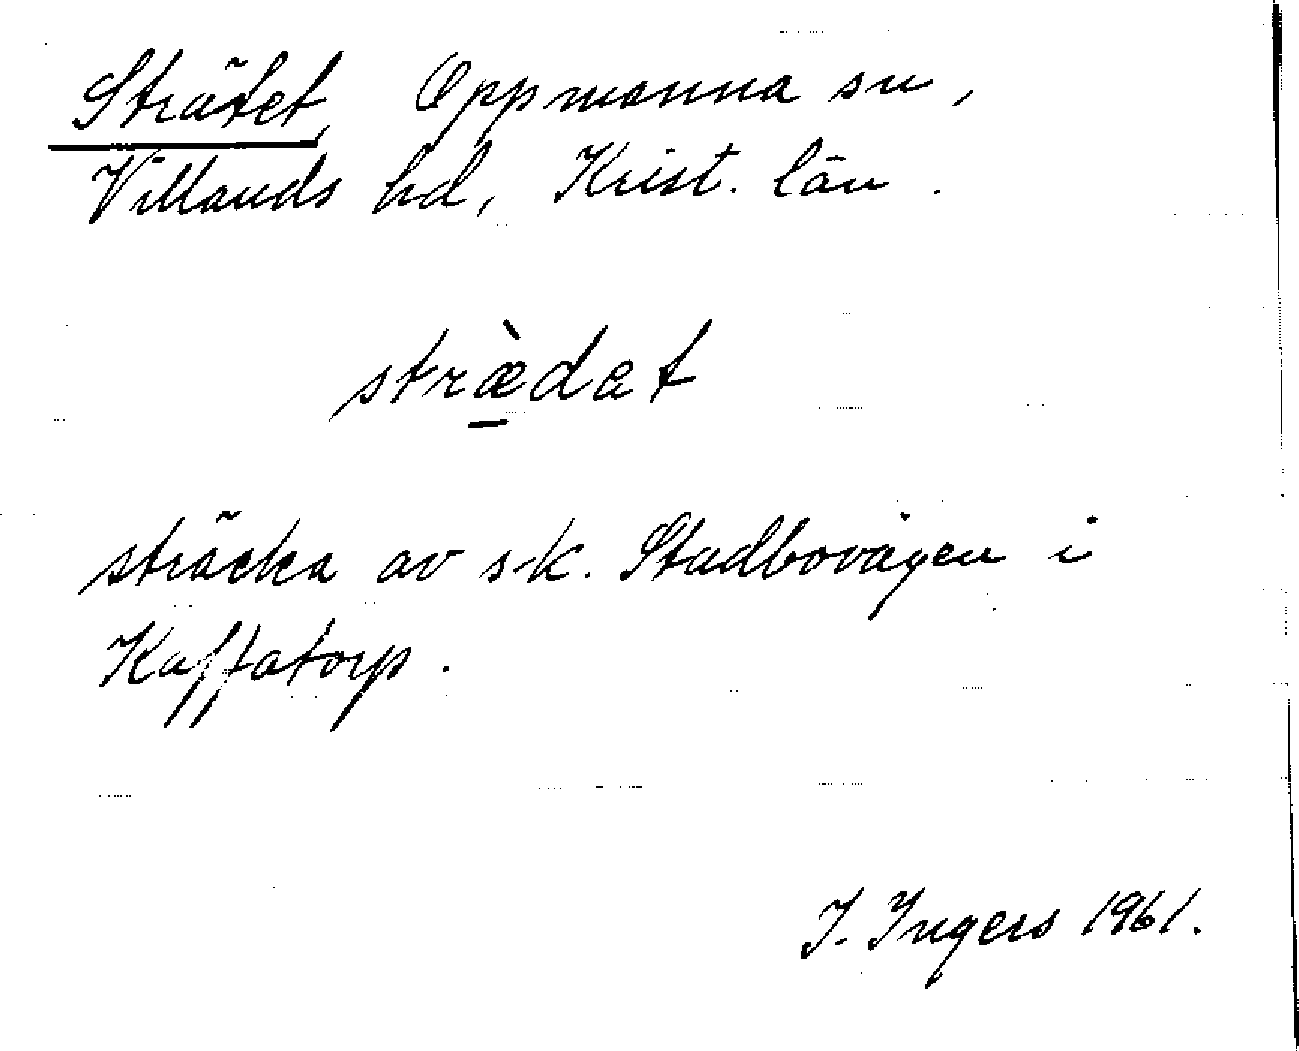 Strätet, Oppmanna sn,
Villands hd, Krist. län.
stræ̀dat
sträcka av s.k. Stadbovägen i
Kaffatorp.
I. Ingers 1961.